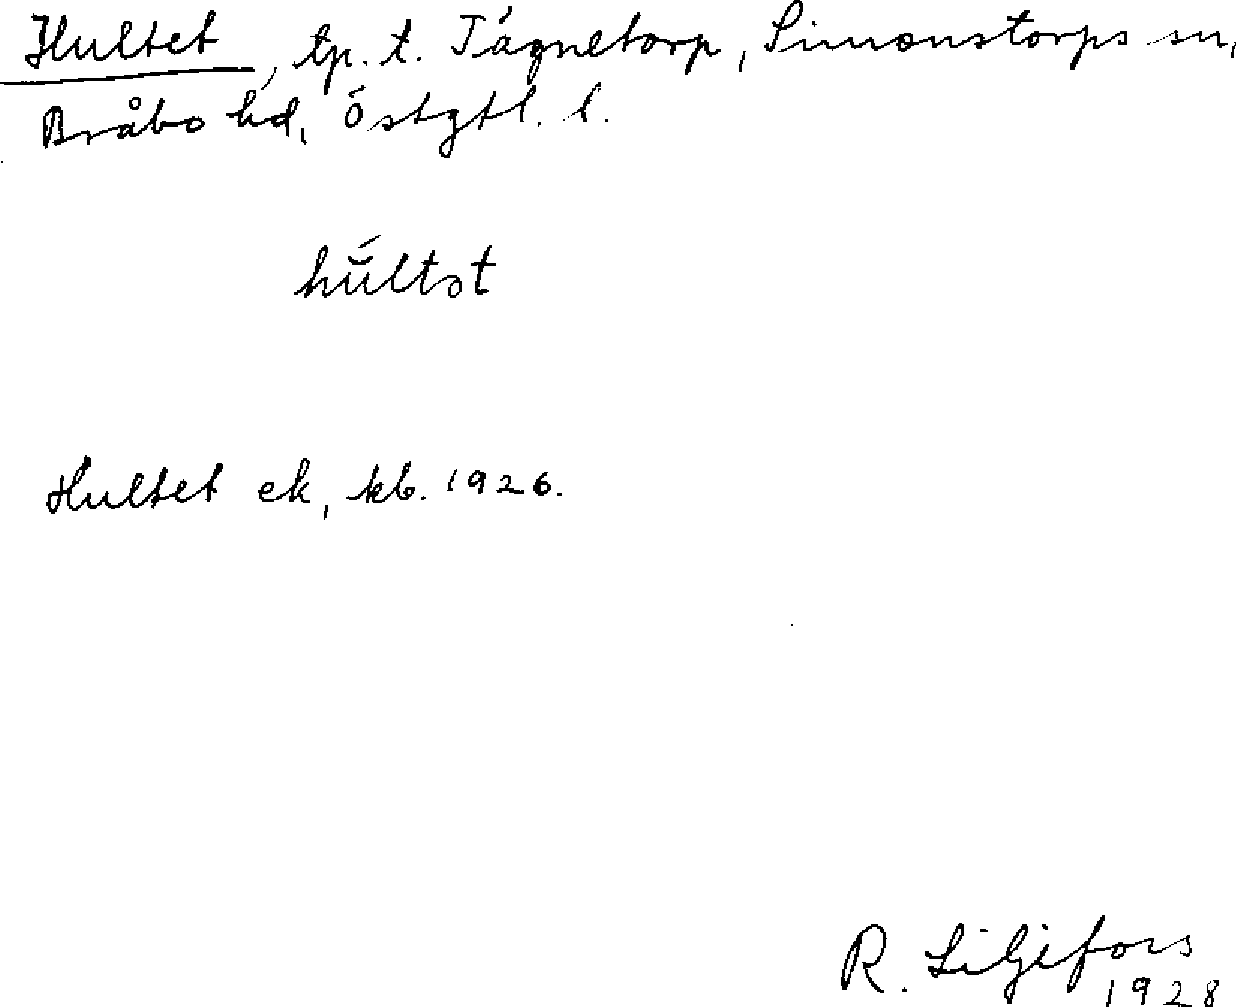 Hultet, tp. t. Tågnetorp, Simonstorps sn,
Bråbo hd, Östgtl. l.
hŭ́ltət
Hultet ek, kb. 1926.
R. Liljefors
1928